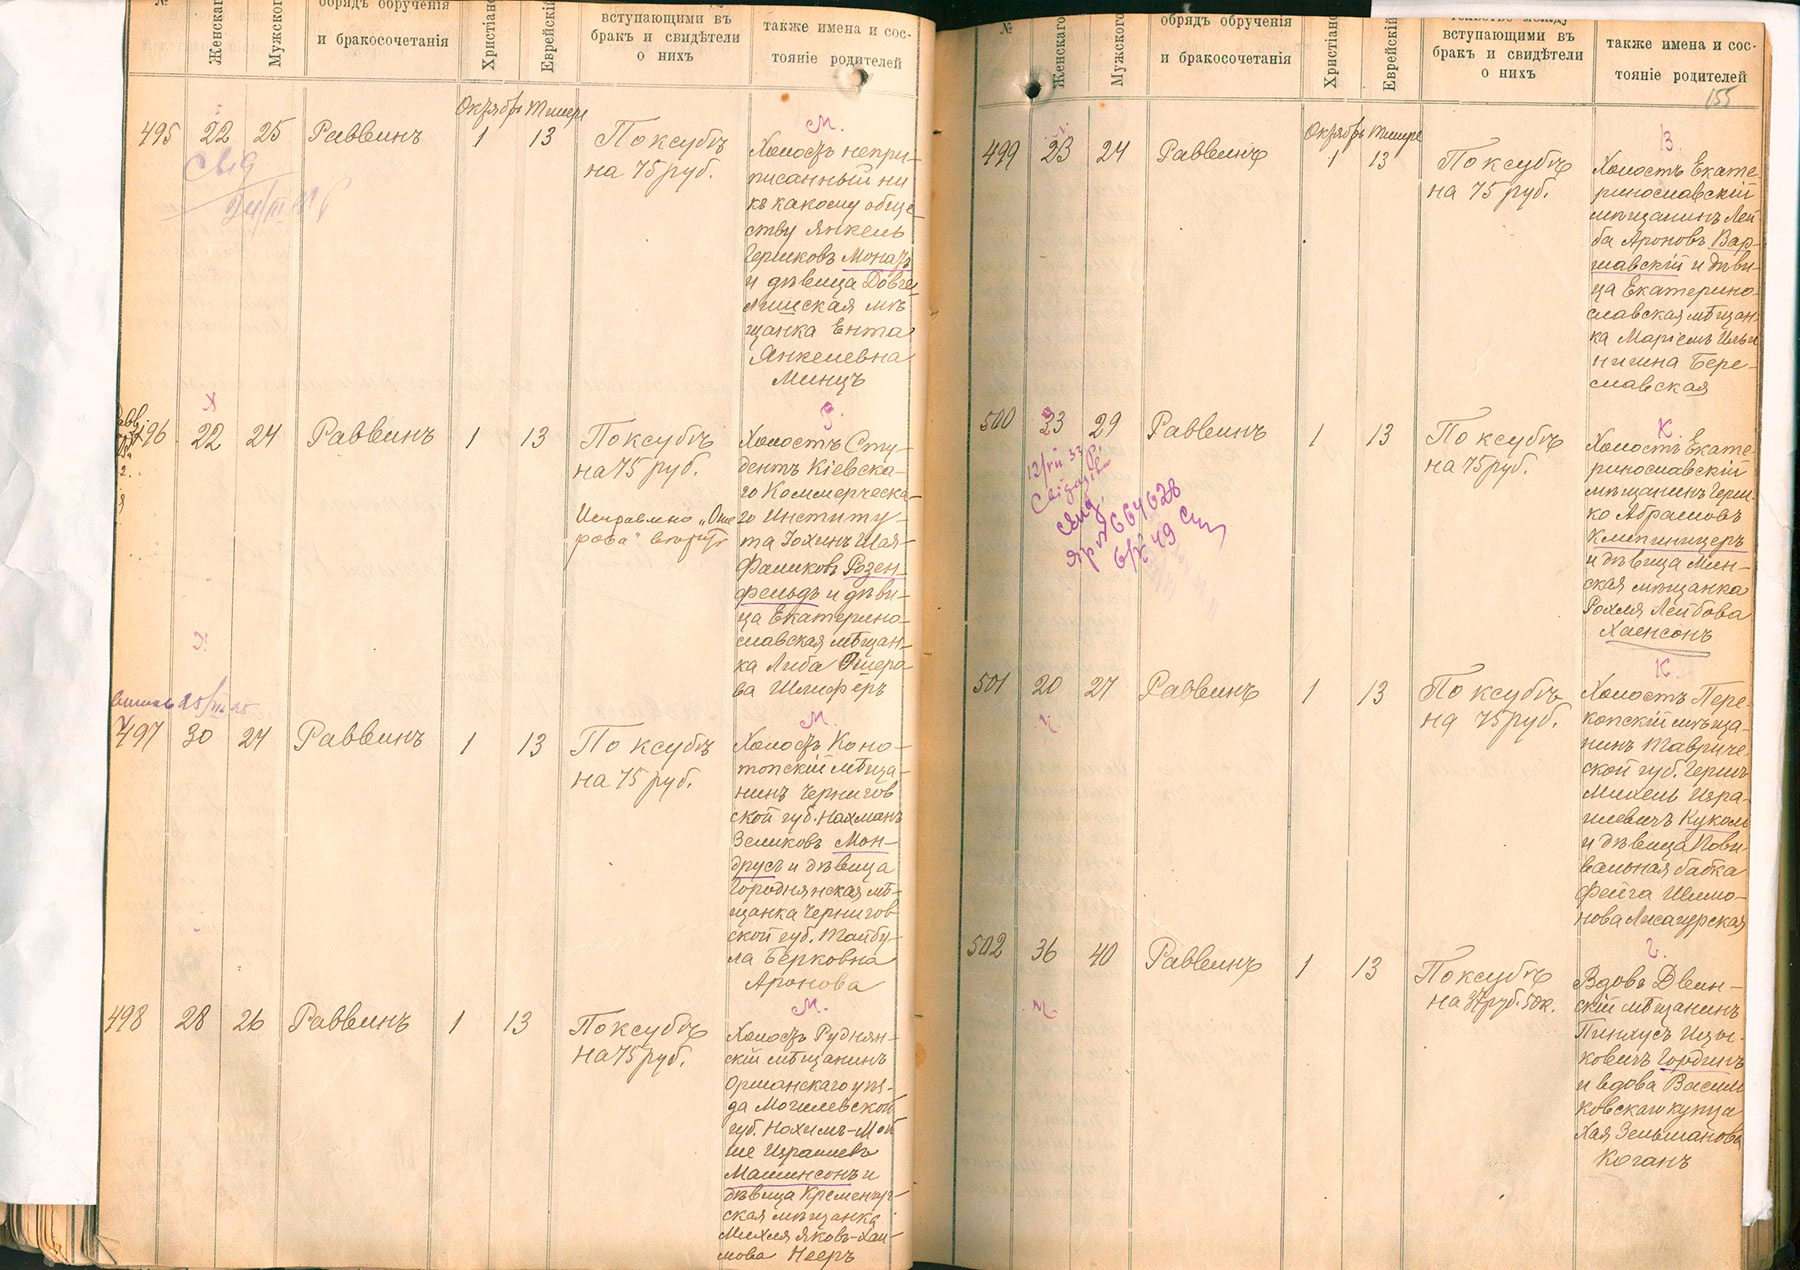 №
Женскаго
Мужского
обрядъ обрученія
и бракосочетанія
Христіанс
Еврейскій
вступающими въ
бракъ и свидѣтели
о нихъ
также имена и сос-
тояніе родителей
Октябрь Тишре
495 22 25 Раввинъ 1 13 По ксубѣ
на 75 руб.
М.
Холостъ непри-
писанный ни
къ какому обще-
ству Янкель
Гершковъ Монатъ
и дѣвица
мѣ-
щанка Ента
Янкелевна
Минцъ
496 22 24 Раввинъ 1 13 По ксубѣ
на 75 руб.
Исправлено „Оше
рова“
Холостъ Сту-
дентъ Кіевска-
го Коммерческа-
го Институ-
та Шая-
Фалковъ Розен-
фельдъ и дѣви-
ца Екатерино-
славская мѣщан-
ка Либа Ошеро-
ва Шлиферъ
497 30 24 Раввинъ 1 13 По ксубѣ
на 75 руб.
М.
Холостъ Коно-
топскій мѣща-
нинъ Чернигов
ской губ. Нахманъ
Зеликовъ Мон-
друсъ и дѣвица
Городнянская мѣ-
щанка Чернигов
ской губ. Тайбу-
ла Берковна
Аронова
498 28 26 Раввинъ 1 13 По ксубѣ
на 75 руб.
М.
Холостъ Руднян-
скій мѣщанинъ
Оршанскаго уѣз-
да Могилевской
губ. Нохимъ-Мов
ше Израилевъ
Машинсонъ и
дѣвица Кременчуг-
ская мѣщанка
Михля Яковъ-Хаи-
мова Нееръ
№
Женскаго
Мужского
обрядъ обрученія
и бракосочетанія
Христіанс
Еврейскій
тельство между
вступающими въ
бракъ и свидѣтели
о нихъ
также имена и сос-
тояніе родителей
155
Октябрь Тишре
499 23 24 Раввинъ 1 13 По ксубѣ
на 75 руб.
В.
Холостъ Екате-
ринославскій
мѣщанинъ Лей
ба Ароновъ Вар-
шавскій и дѣви-
ца Екатерино-
славская мѣщан-
ка Маріемъ Ильи
нична Бере-
славская
500 23 29 Раввинъ 1 13 По ксубѣ
на 75 руб.
К.
Холостъ Екате-
ринославскій
мѣщанинъ Герш-
ко Абрамовъ
Клигиницеръ
и дѣвица Мин-
ская мѣщанка
Рохля Лейбова
Хаенсонъ
501 20 27 Раввинъ 1 13 По ксубѣ
на 75 руб.
К.
Холостъ Пере-
копскій мѣща-
нинъ Тавриче-
ской губ. Гершъ
Михель Изра-
илевичъ Куколь
и дѣвица Пови-
вальная бабка
Фейга Шлимо-
нова Лисагурская
502 36 40 Раввинъ 1 13 По ксубѣ
на 37 руб. 50 к.
Г.
Вдовъ Двин-
скій мѣщанинъ
Пинхусъ Ицы-
ковичъ Гординъ
и вдова Василь
ковскаго купца
Хая Зельманова
Коганъ